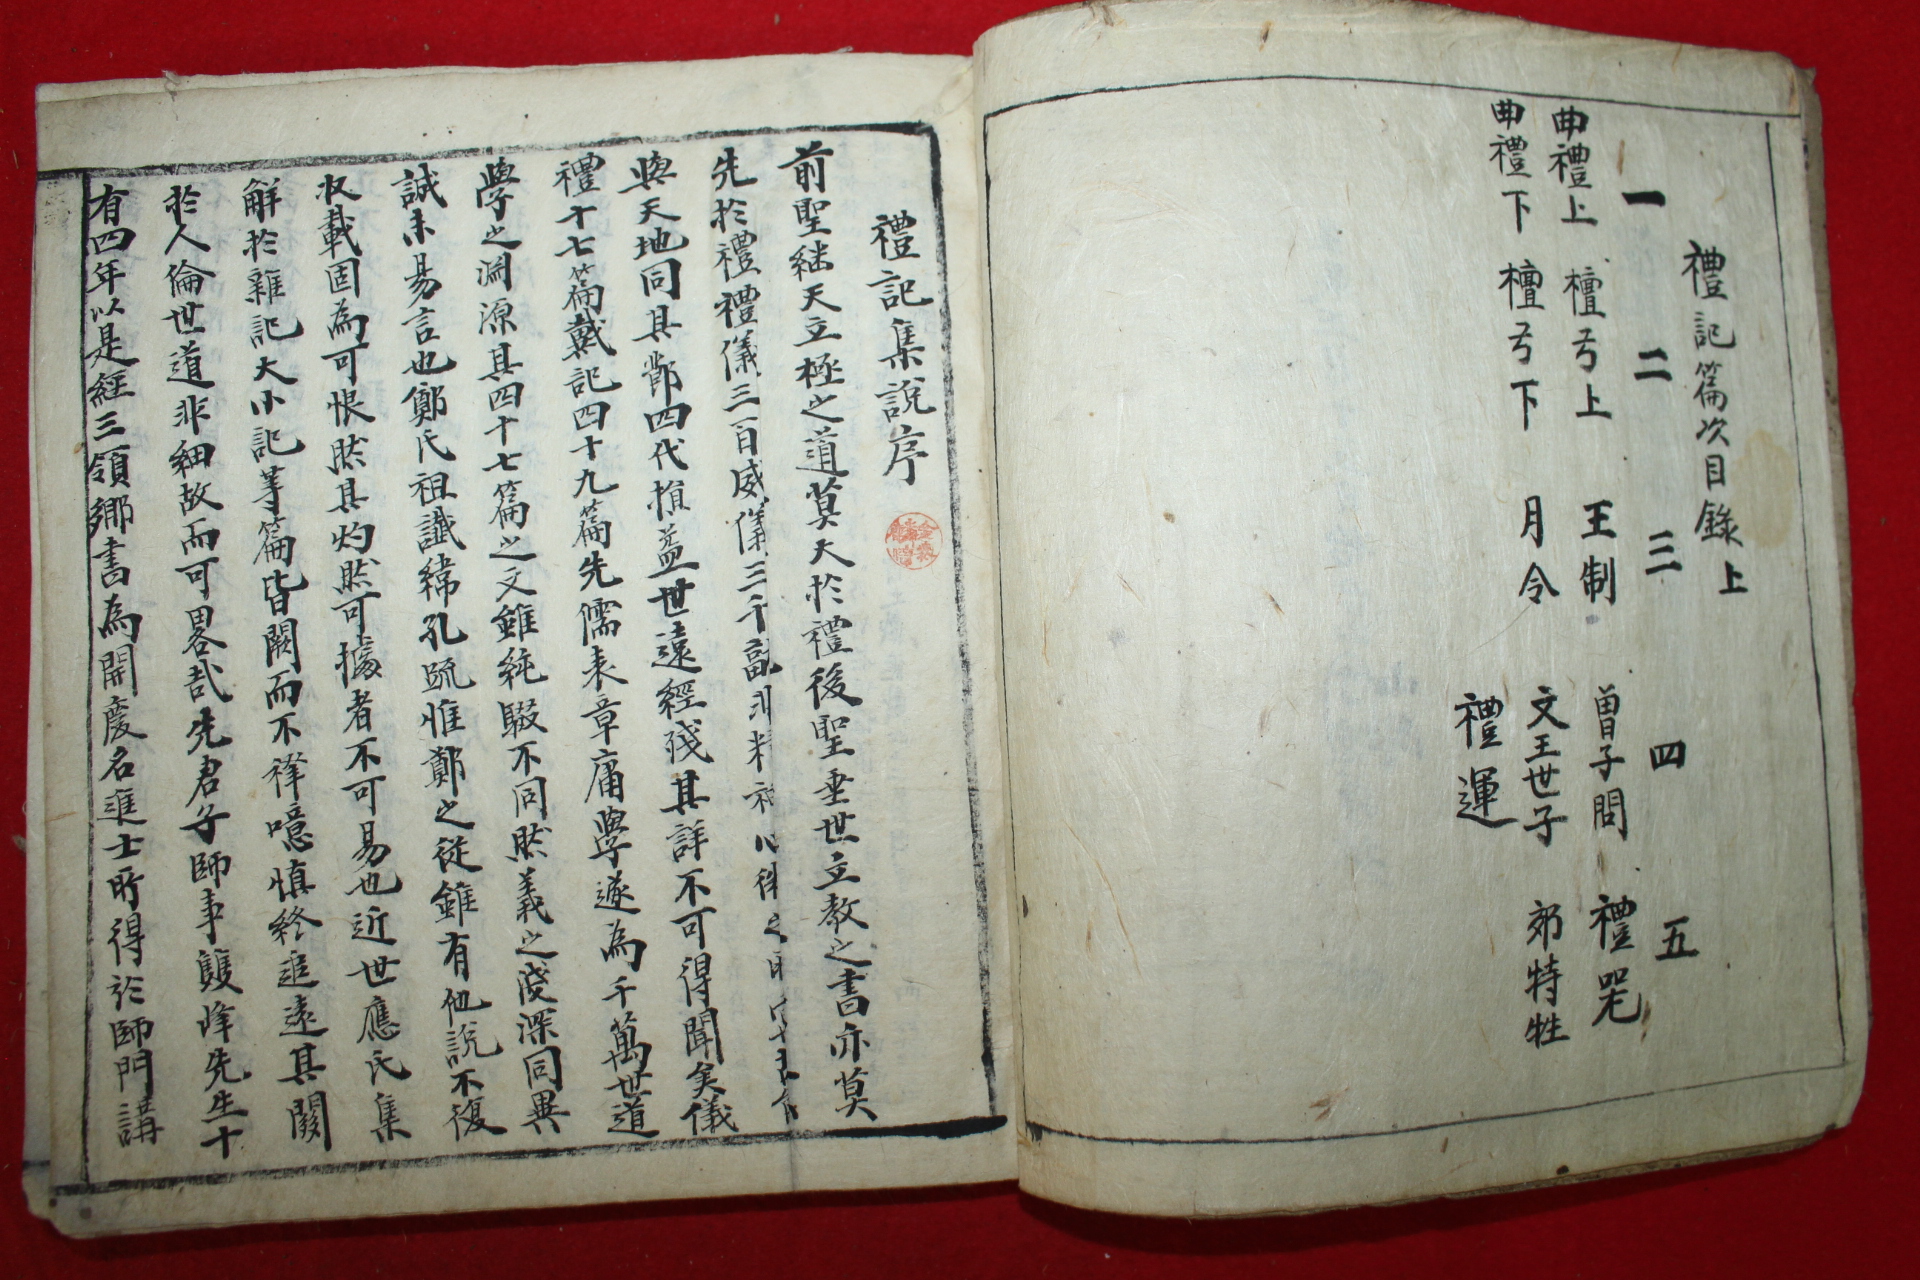 禮記篇次目錄上
一 二 三 四 五
曲禮上 檀弓上 王制 曾子問 禮器
曲禮下 檀弓下 月令 文王世子 郊特牲
禮運
禮記集說序
前聖継天立極之道莫大於禮後聖垂世立教之書亦莫
先於禮禮儀三百威儀三千
與天地同其莭四代損益世遠經殘其詳不可得聞矣儀
禮十七篇戴記四十九篇先儒表章庸學遂為千萬世道
學之渊源其四十七篇之文雖純駁不同然義之淺深同異
誠未易言也鄭氏祖讖緯孔疏惟鄭之從雖有他說不復
収載固為可恨然其灼然可據者不可易也近世應氏集
解於雜記大小記等篇皆闕而不釋噫慎終追遠其闕
於人倫世道非細故而可畧哉先君子師事雙峰先生十
有四年以是經三領鄉書為開慶名進士所得於師門講